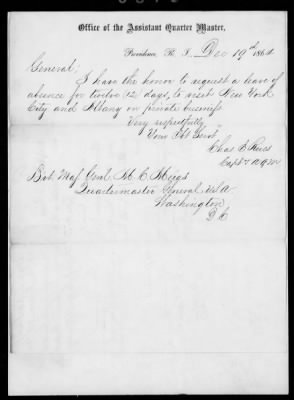 Office of the Assistant Quarter Master,
Providence, R. I. Dec 19th 1864
General,
I have the honor to request a leave of
absence for twelve (12) days, to visit New York
City and Albany on private business
Very respectfully
Your Obt Servt
Chas
Capt & AQM
Bvt Maj Genl M. C. Meigs
Quartermaster General U.S.A.
Washington
D C